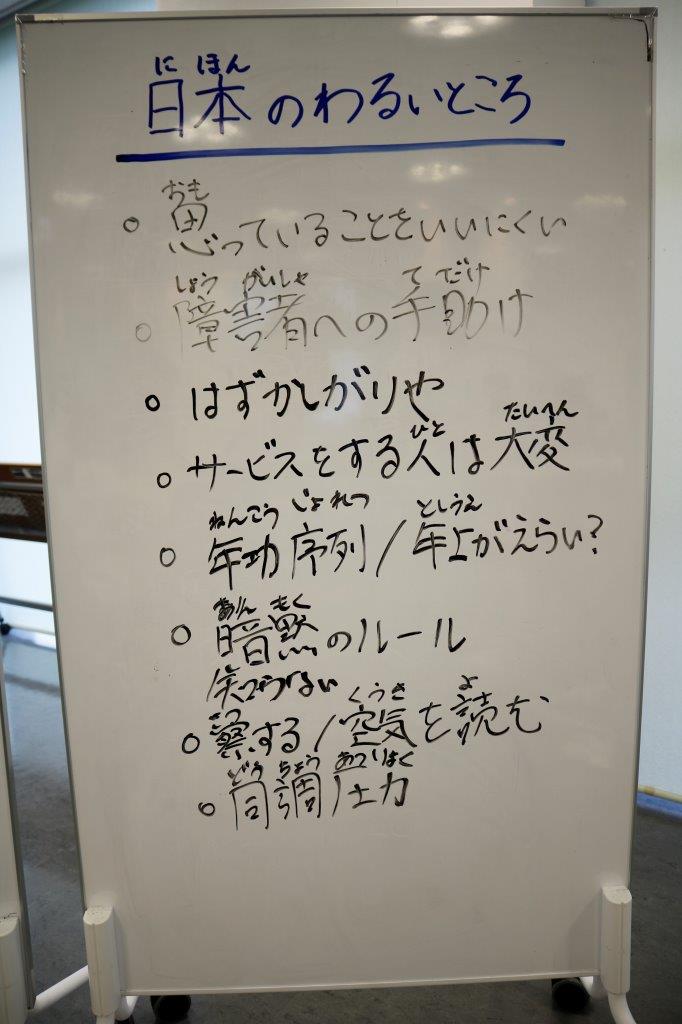 にほん
日本のわるいところ
おも
○ 思っていることをいいにくい
しょうがいしゃ てだけ
○ 障害者への手助け
○ はずかしがりや
ひと たいへん
○ サービスをする人は大変
ねんこうじょれつ としうえ
○ 年功序列/年上がえらい?
あんもく
○ 暗黙のルール
知らない
くうき よ
○ 察する/空気を読む
どうちょうあつりょく
○ 同調圧力